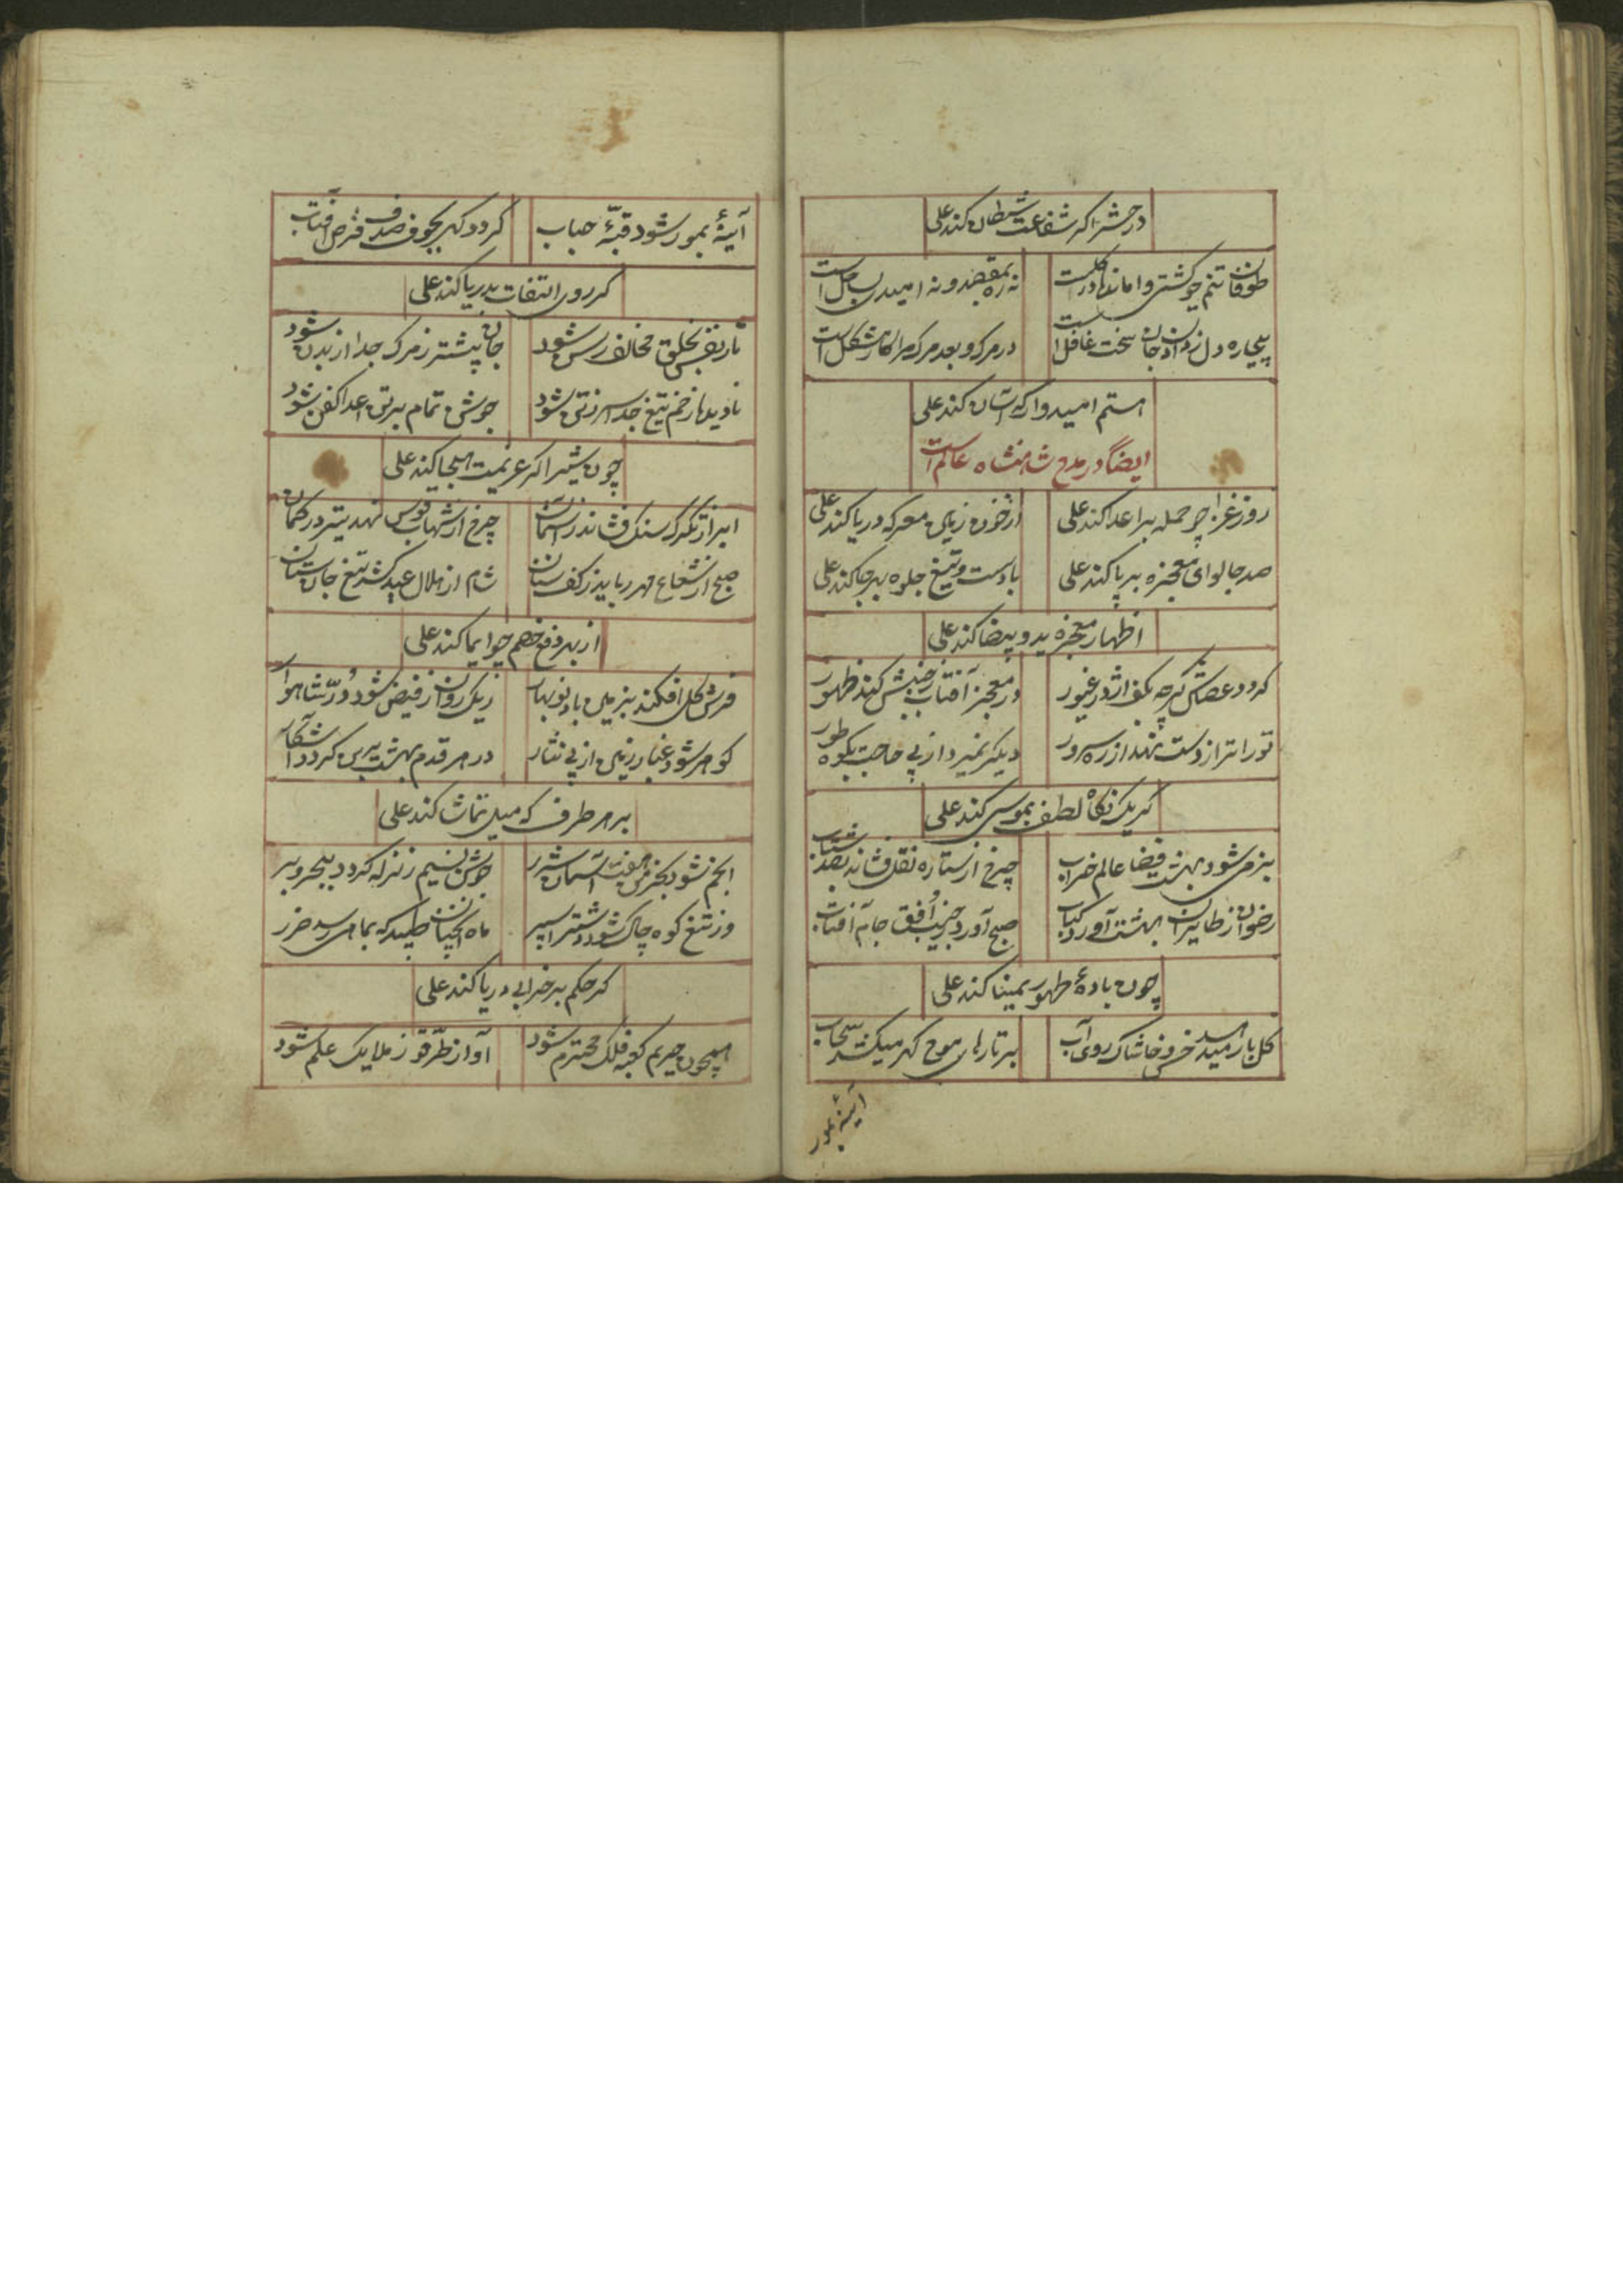 در حشر اگر شفاعت شیطان کند علی
طوفان تنم چو کشتی وامانده در کلست نه ره بمقصد و نه امیدی بساحل است
بیچاره دل ز دادن جان سخت غافل است در مرک و بعد مرک مرا کار مشکل است
هستم امیدوار که آسان کند علی
ایضاً در مدح شاهنشاه عالم است
روز غزا چو حمله بر اعدا کند علی از خون زمین معرکه دریا کند علی
صد جا لوای معجزه بر پا کند علی با دست و تیغ جلوه بهر جا کند علی
اظهار معجزه ید و بیضا کند علی
کردد عصاش کرچه بکف اژدر غیور در معجز آفتاب ز جیبش کند ظهور
تورات را ز دست نهد از ره سرور دیکر نمیرد از پی حاجت بکوه طور
کر یک نکاه لطف بموسی کند علی
بزمی شود بهشت فضا عالم خراب چرخ از ستاره نقل فشاند بصد شتاب
رضوان ز طایران بهشت آورد کباب صبح آورد ز جیب افق جام آفتاب
چون باده طهور بمینا کند علی
کل بار امید خس و خاشاک روی آب بر تارهای موج کهر میکشد سحاب
آینهٔ بمور
آینهٔ بمور شود قبّهٔ حباب کردد کهر بجوف صدف قرص آفتاب
کر روی التفات بدریا کند علی
تار نفس بحلق مخالف رسن شود جان پیشتر ز مرک جدا از بدن شود
نادیده زخم تیغ جدا سر ز تن شود جوشن تمام بر تن اعدا کفن شود
چون شیر اکر عزیمت هیجا کند علی
ابر از تکرک سنک فشاند ز آسمان چرخ از شهاب قوس نهد تیر در کمان
صبح از شعاع مهر رباید ز کف سنان شام از هلال عید کشد تیغ جان ستان
از بهر دفع خصم چو ایما کند علی
فرش کل افکند بزمین باد نوبهار ریک روان ز فیض شود درّ شاهوار
کوهر شود غبار زمین از پی نثار در هر قدم بهشت برین کردد آشکار
بر هر طرف که میل تماشا کند علی
انجم شود بخرمن هفت آسمان شرر جوش نسیم زلزله کردد ببحر و بر
وز تیغ کوه چاک شود سپر ماه آنچنان طپد که بماهی رسد ضرر
کر حکم بر خرابی دریا کند علی
همچون حریم کعبه فلک محترم شود آواز طرّقو ز ملایک علم شود